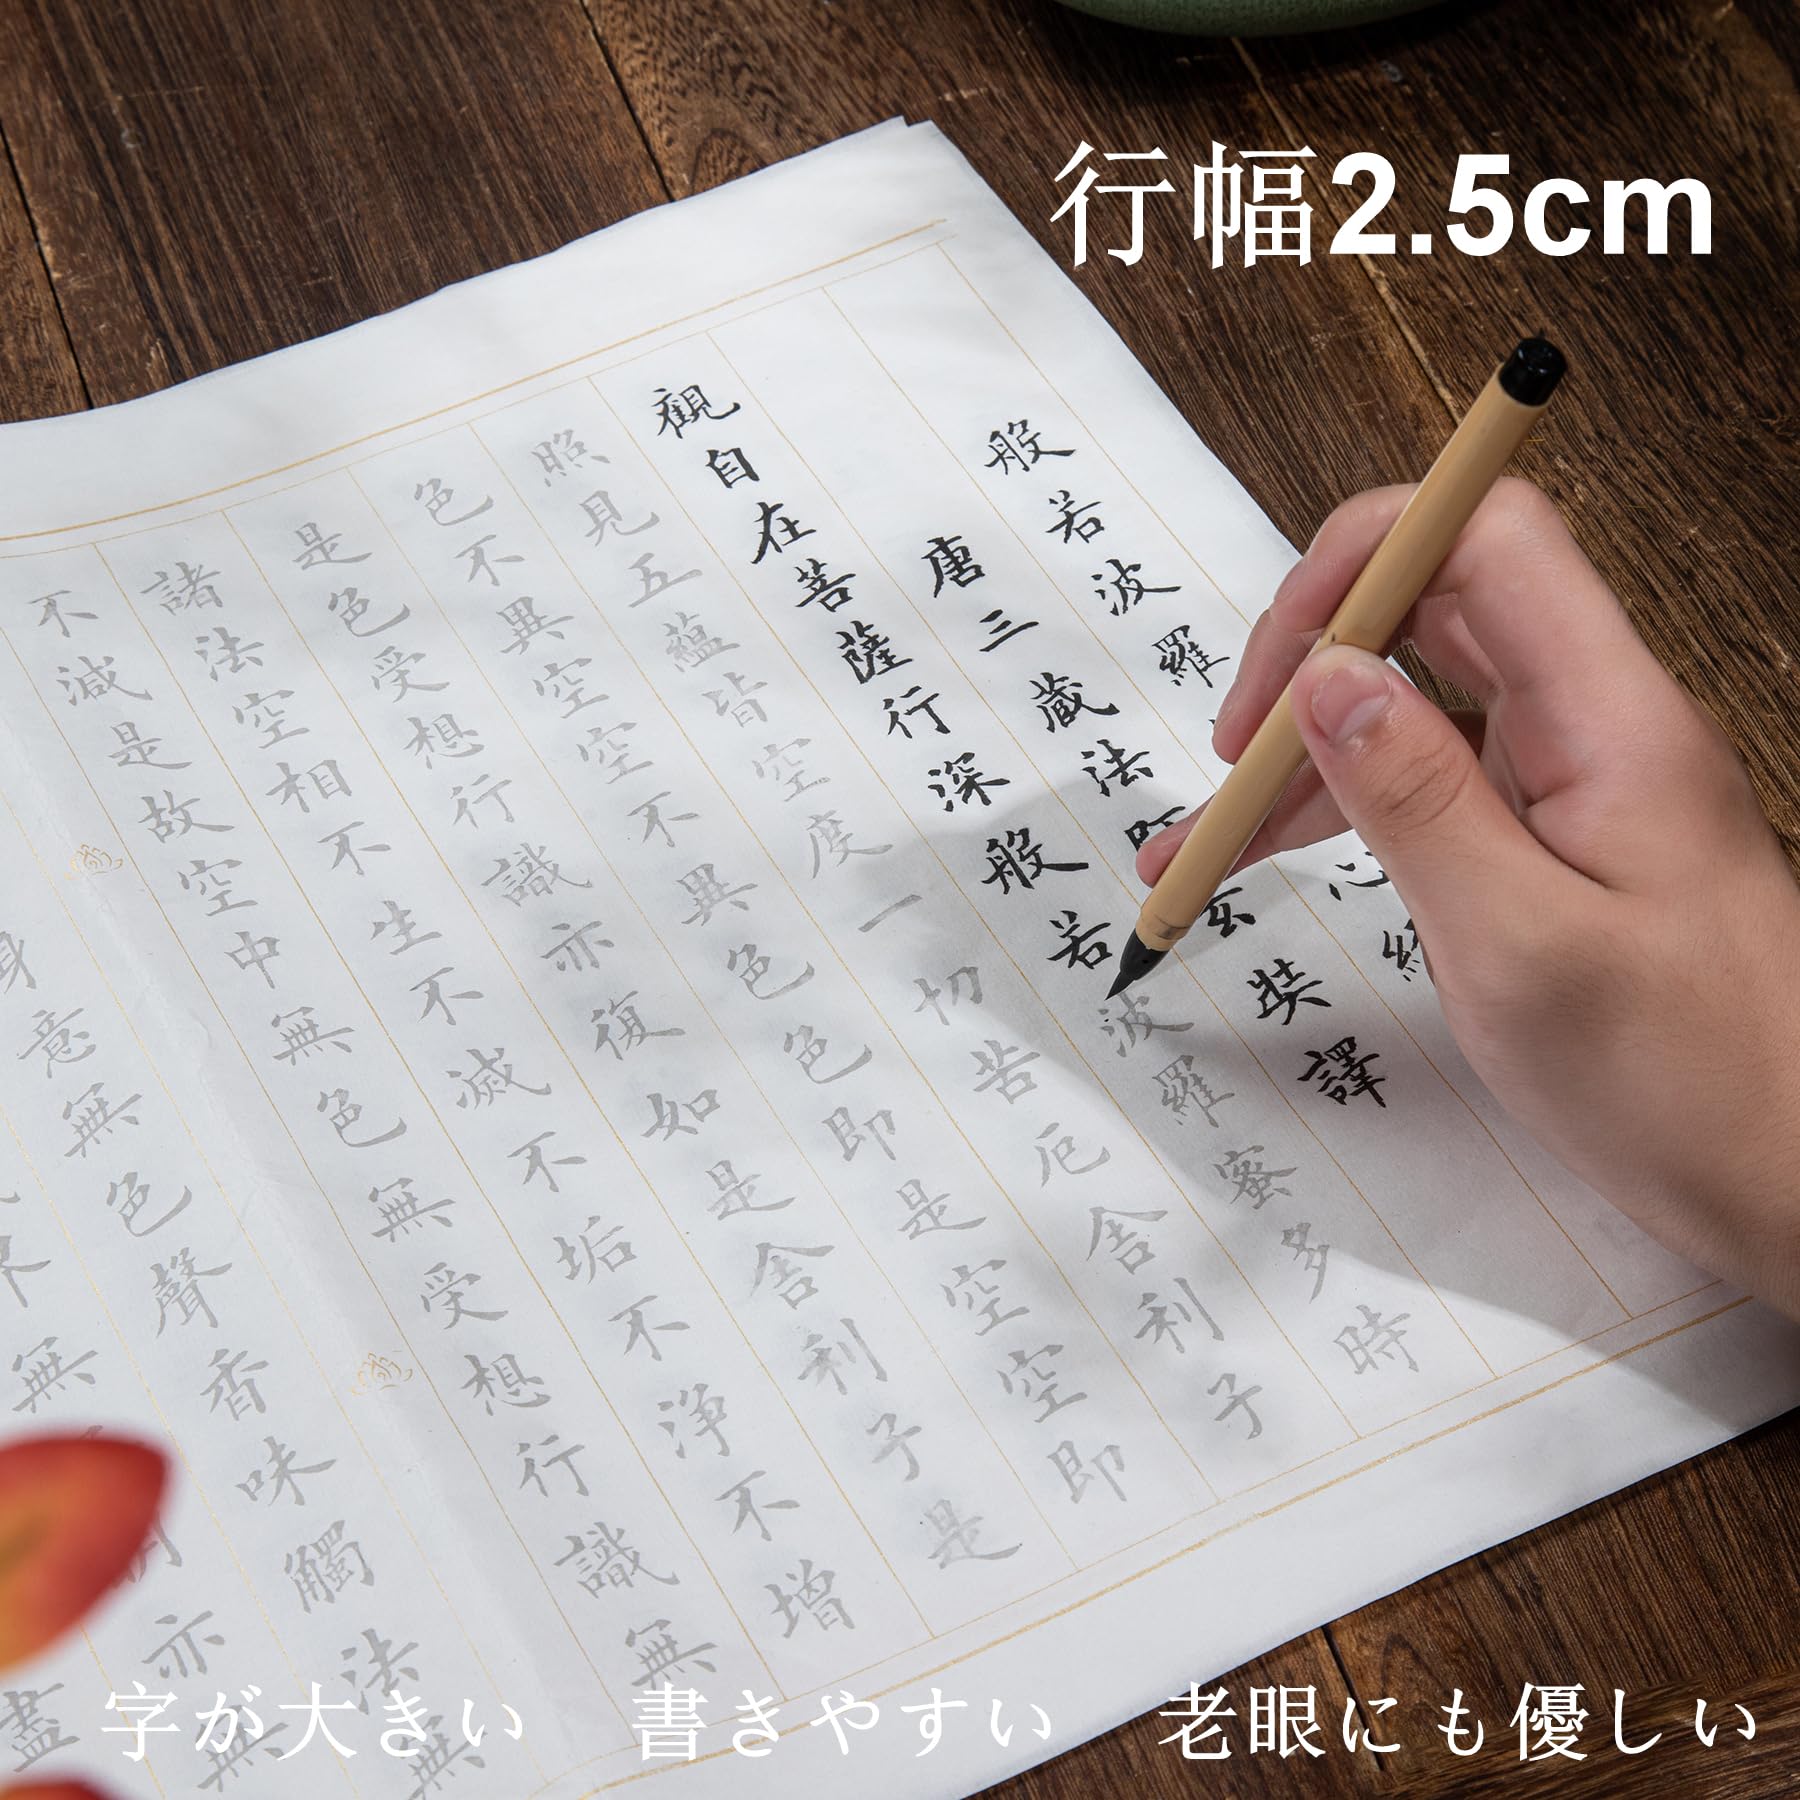 行幅2.5cm
般若波羅 心經
唐三蔵法師玄奘譯
觀自在菩薩行深般若波羅蜜多時
照見五蘊皆空度一切苦厄舍利子
色不異空空不異色色即是空空即
是色受想行識亦復如是舍利子是
諸法空相不生不滅不垢不淨不增
不減是故空中無色無受想行識無
身意無色聲香味觸法無
界無 明亦無
盡
字が大きい 書きやすい 老眼にも優しい